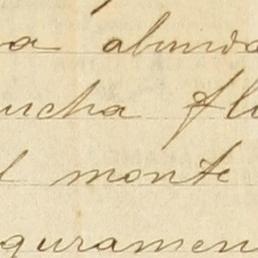 a abunda
ucha flo
l monte
guramen